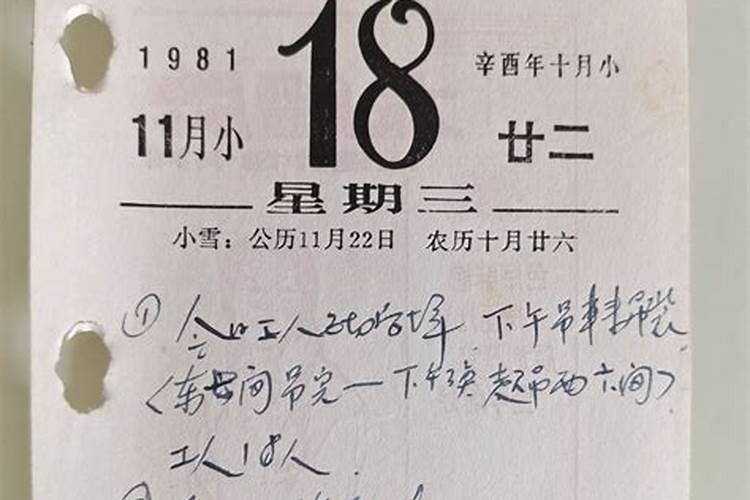 1981
18
辛酉年十月小
11月小
廿二
星期三
小雪：公历11月22日 农历十月廿六
① 工人 下午吊
〈东 间吊完一下午 吊西六间〉
工人18人.